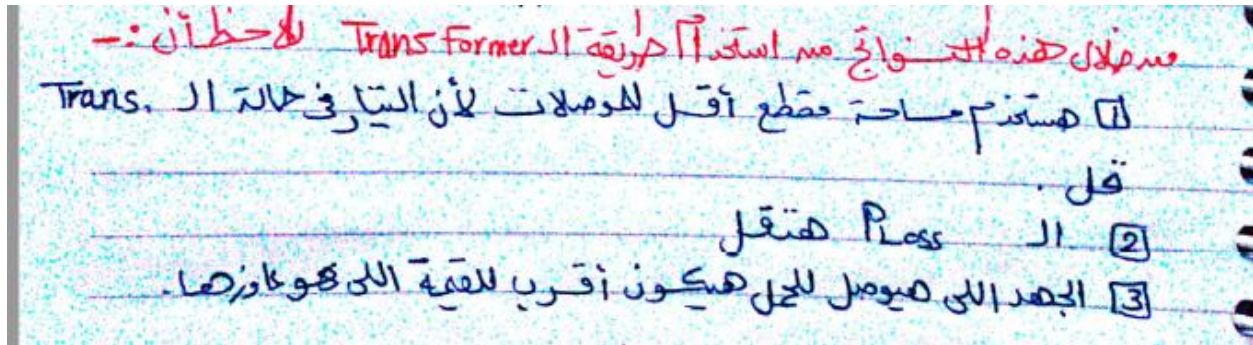 من خلال هذه النواتج من استخدام طريقة الـ Transformer لاحظ أن :-
1 هستخدم مساحة مقطع أقل للموصلات لأن التيار في حالة الـ Trans.
قل .
2 الـ PLoss هتقل
3 الجهد اللى هيوصل للحمل هيكون أقرب للقيمة اللى هو عاوزها.